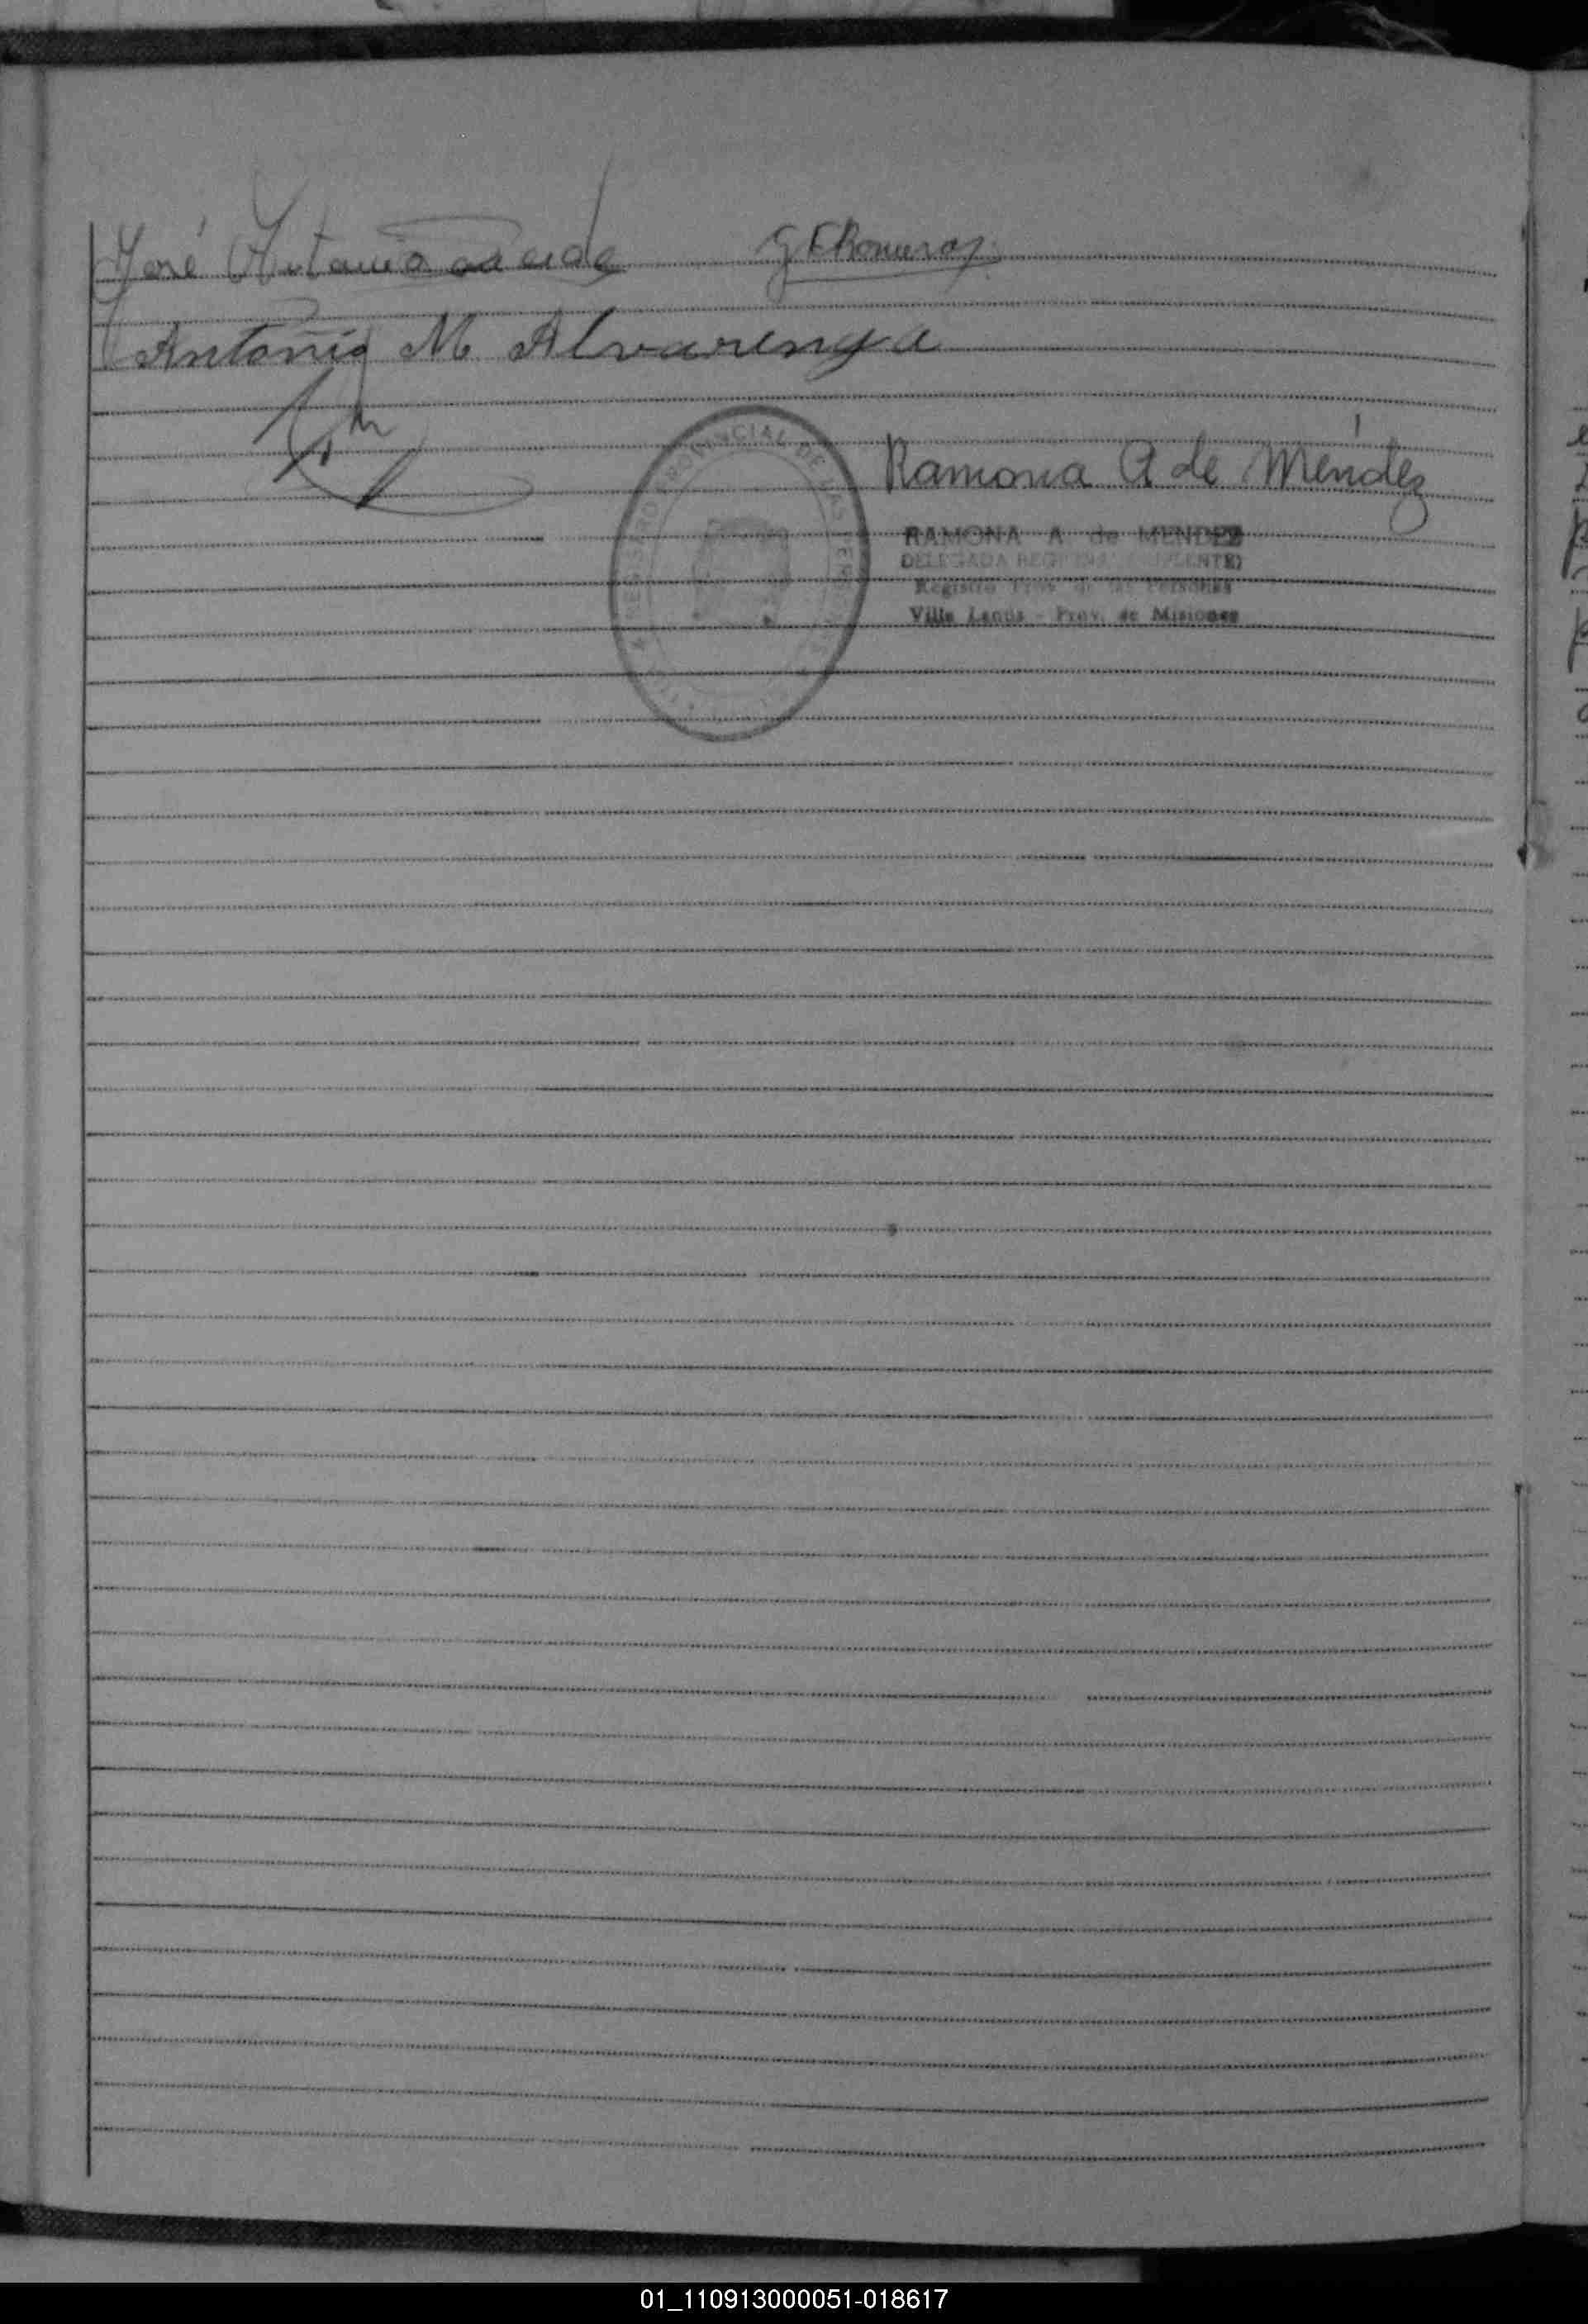 José Antonio
G E Romero
Antonio M Alvarenga
PROVINCIAL DE LAS
Ramona A de Méndez
RAMONA A de MENDEZ
DELEGADA
Registro Prov de las Personas
Villa Lanús - Prov. de Misiones
01_110913000051-018617